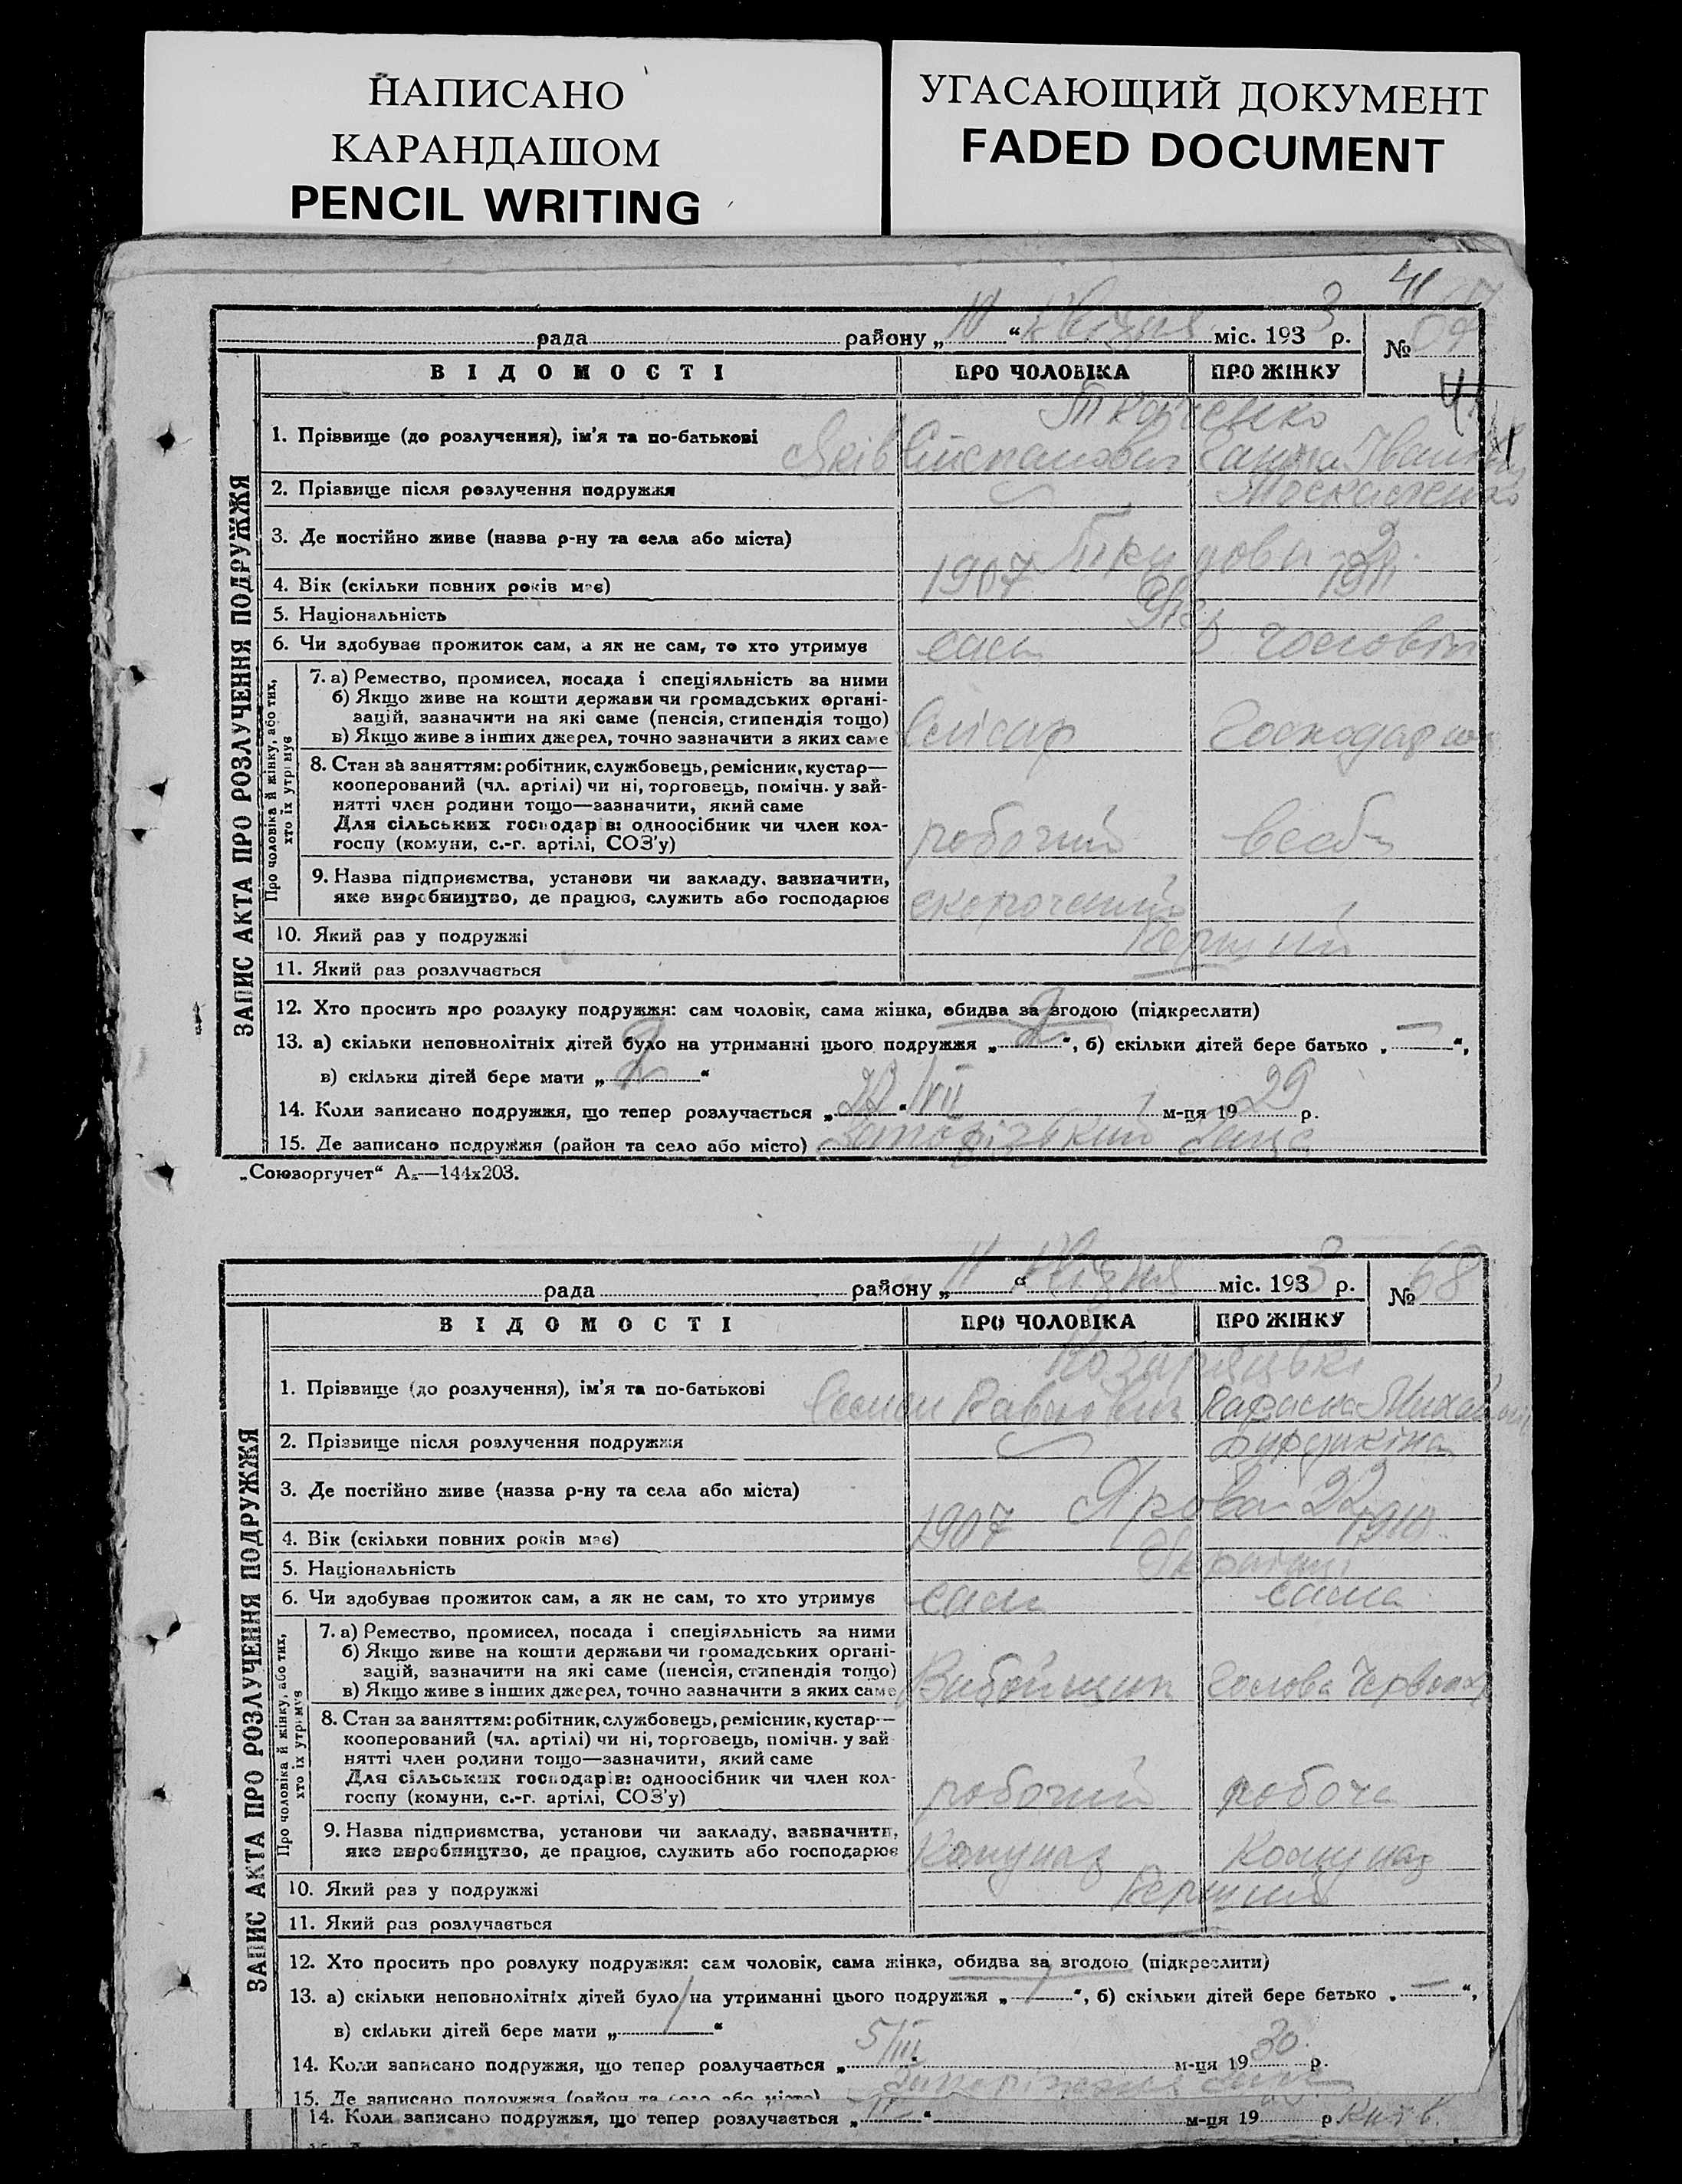 НАПИСАНО
КАРАНДАШОМ
PENCIL WRITING
УГАСАЮЩИЙ ДОКУМЕНТ
FADED DOCUMENT
41
рада району „ 10 “ Квітня міс. 1933 р. №
ВІДОМОСТІ ПРО ЧОЛОВІКА ПРО ЖІНКУ
ЗАПИС АКТА ПРО РОЗЛУЧЕННЯ ПОДРУЖЖЯ
Ткаченко
1. Прізвище (до розлучення), ім'я та по-батькові Яків Степанович Ганна
2. Прізвище після розлучення подружжя Москаленко
3. Де постійно живе (назва р-ну та села або міста)
4. Вік (скільки повних років має) 1907
5. Національність
6. Чи здобуває прожиток сам, а як не сам, то хто утримує сам чоловік
Про чоловіка й жінку, або тих,
хто їх утримує
7. а) Ремество, промисел, посада і спеціяльність за ними
б) Якщо живе на кошти держави чи громадських органі-
зацій, зазначити на які саме (пенсія, стипендія тощо)
в) Якщо живе з інших джерел, точно зазначити з яких саме Слісар Господарка
8. Стан за заняттям: робітник, службовець, ремісник, кустар—
кооперований (чл. артілі) чи ні, торговець, помічн. у зай-
нятті член родини тощо—зазначити, який саме
Для сільських господарів: одноосібник чи член кол-
госпу (комуни, с.-г. артілі, СОЗ'у) робочий
9. Назва підприємства, установи чи закладу, зазначити,
яке виробництво, де працює, служить або господарює скорочений
10. Який раз у подружжі Перший
11. Який раз розлучається
12. Хто просить про розлуку подружжя: сам чоловік, сама жінка, обидва за згодою (підкреслити)
13. а) скільки неповнолітніх дітей було на утриманні цього подружжя „ 2 “, б) скільки дітей бере батько „ — “,
в) скільки дітей бере мати „ 2 “
14. Коли записано подружжя, що тепер розлучається „ /VII “ м-ця 1929 р.
15. Де записано подружжя (район та село або місто) Запорізький Загс
„Союзоргучет“ А₅—144х203.
рада району „ 11 “ Квітня міс. 1933 р. № 68
ВІДОМОСТІ ПРО ЧОЛОВІКА ПРО ЖІНКУ
ЗАПИС АКТА ПРО РОЗЛУЧЕННЯ ПОДРУЖЖЯ
1. Прізвище (до розлучення), ім'я та по-батькові Семен Павлович Параска
2. Прізвище після розлучення подружжя
3. Де постійно живе (назва р-ну та села або міста) Ярова 22
4. Вік (скільки повних років має) 1907 1910
5. Національність Українці
6. Чи здобуває прожиток сам, а як не сам, то хто утримує сам сама
Про чоловіка й жінку, або тих,
хто їх утримує
7. а) Ремество, промисел, посада і спеціяльність за ними
б) Якщо живе на кошти держави чи громадських органі-
зацій, зазначити на які саме (пенсія, стипендія тощо)
в) Якщо живе з інших джерел, точно зазначити з яких саме Вибойщик Голова
8. Стан за заняттям: робітник, службовець, ремісник, кустар—
кооперований (чл. артілі) чи ні, торговець, помічн. у зай
нятті член родини тощо—зазначити, який саме
Для сільських господарів: одноосібник чи член кол-
госпу (комуни, с.-г. артілі, СОЗ'у) робочий робоча
9. Назва підприємства, установи чи закладу, зазначити,
яке виробництво, де працює, служить або господарює Комунар Комунар
10. Який раз у подружжі Перший
11. Який раз розлучається
12. Хто просить про розлуку подружжя: сам чоловік, сама жінка, обидва за згодою (підкреслити)
13. а) скільки неповнолітніх дітей було на утриманні цього подружжя „ 1 “, б) скільки дітей бере батько „ — “,
в) скільки дітей бере мати „ 1 “
14. Коли записано подружжя, що тепер розлучається „ 5/III “ м-ця 1930 р.
15. Де записано подружжя (район та село або місто)
14. Коли записано подружжя, що тепер розлучається „ “ м-ця 19 р.